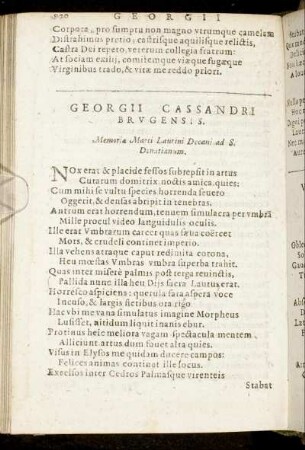 GEORGII
Corpora, pro sumpta non magno utrumque camelum
Distrahimus pretio; castrisque aquilisque relictis,
Castra Dei repeto, veterum collegia fratrum:
At sociam exilij, comitemque viæque fugæque
Virginibus trado, & vitæ me reddo priori.
GEORGII CASSANDRI
BRVGENSIS.
Memoriæ Marci Laurini Decani ad S.
Donatianum.
NOx erat & placidè fessos subrepsit in artus
Curarum domitrix noctis amica quies:
Cum mihi se vultu species horrenda seuero
Oggerit, & densas abripit in tenebras.
Antrum erat horrendum, tenuem simulacra per vmbrã
Mille procul video languidulis oculis.
Ille erat Vmbrarum carcer quas sæua coërcet
Mors, & crudeli continet imperio.
Illa vehens atraque caput redimita corona,
Heu mœstas Vmbras vmbra superba trahit.
Quas inter miserè palmis post terga reuinctis,
Pallida nunc illa heu Dijs sacra Laurus erat.
Horresco aspiciens: querula fata aspera voce
Incuso, & largis fletibus ora rigo
Hac vbi me vana simulatus imagine Morpheus
Lusisset, nitidum liquit inanis ebur.
Protinus hele meliora vagam spectacula mentem
Alliciunt artus dum fouet alta quies.
Visus in Elysos me quidam ducere campos:
Felices animas continet ille locus.
Excelsos inter Cedros Palmasque virenteis
Stabat